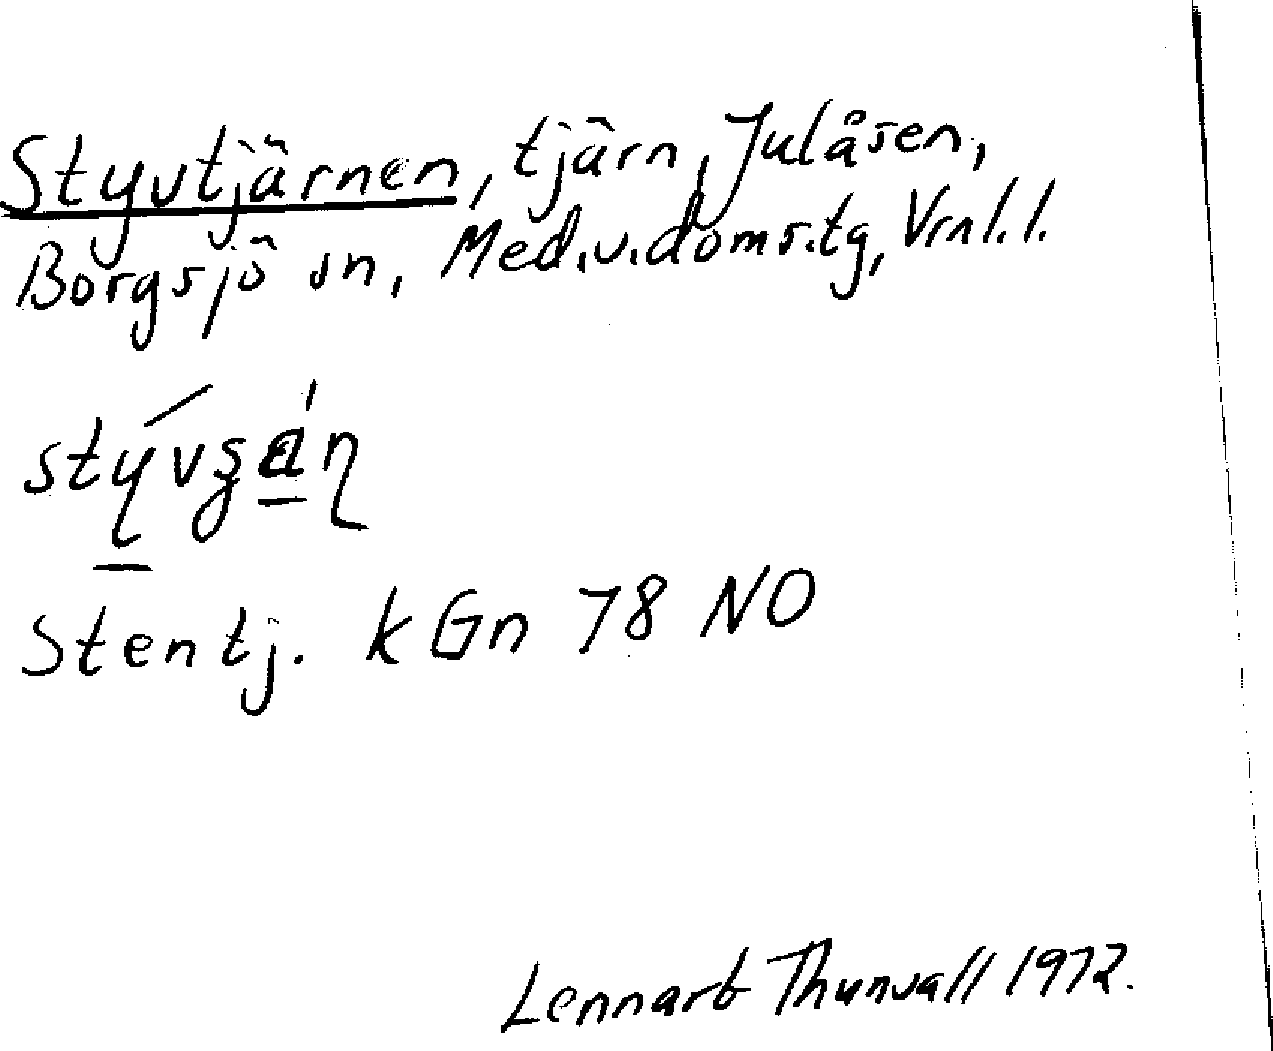 Styvtjärnen, tjärn, Julåsen,
Borgsjö sn, Med.v.doms.tg, Vrnl.l.
Stentj. k Gn 78 NO
Lennart Thunvall 1972.